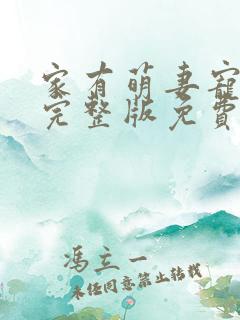 家有萌妻寵
完整版免費
馮立一
未经同意禁止转载